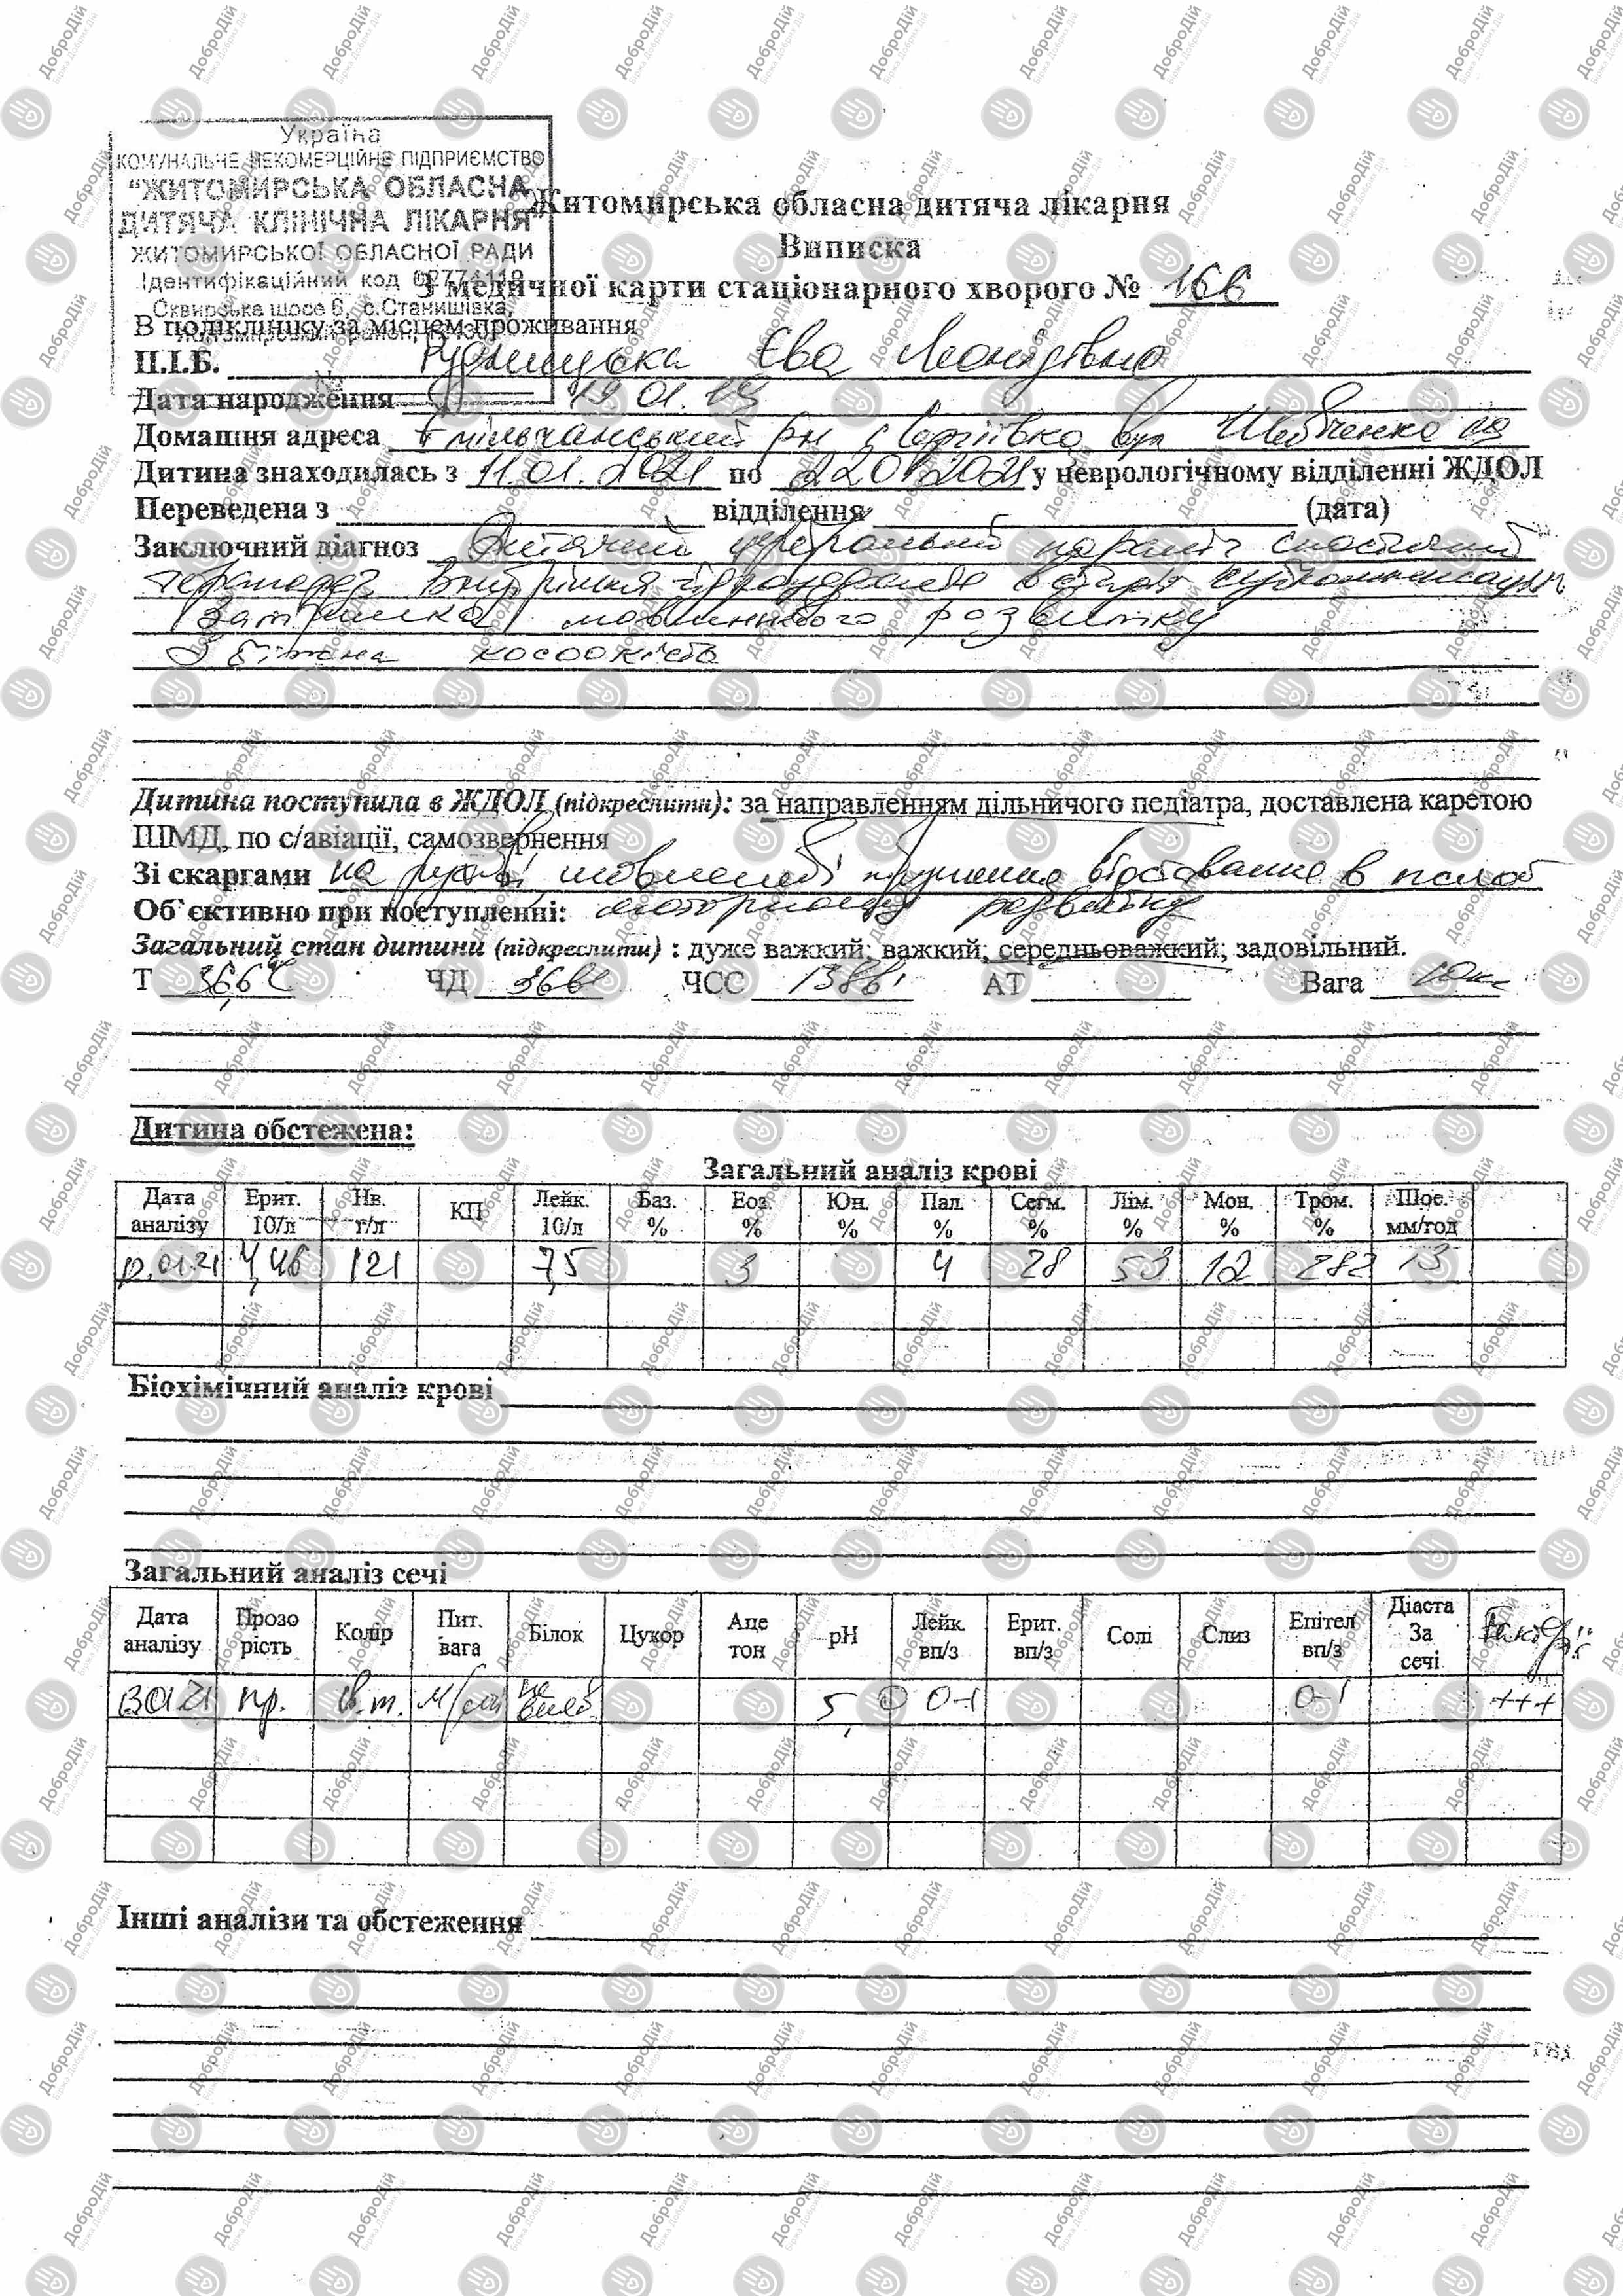 Україна
КОМУНАЛЬНЕ НЕКОМЕРЦІЙНЕ ПІДПРИЄМСТВО
"ЖИТОМИРСЬКА ОБЛАСНА
ДИТЯЧА КЛІНІЧНА ЛІКАРНЯ"
ЖИТОМИРСЬКОЇ ОБЛАСНОЇ РАДИ
Ідентифікаційний код
Сквирське шосе 6, с.Станишівка,
Житомирська обласна дитяча лікарня
Виписка
З медичної карти стаціонарного хворого № 166
В поліклініку за місцем проживання
П.І.Б. Єва Леонідівна
Дата народження 19 01.19
Домашня адреса Ємільчанський рн с Сергіївка вул Шевченка
Дитина знаходилась з 11.01.2021 по 22 01 2021 у неврологічному відділенні ЖДОЛ
Переведена з відділення (дата)
Заключний діагноз Дитячий церебральний параліч спастичний
тетрапарез Внутрішня гідроцефалія в стадії субкомпенсації
Затримка мовленнєвого розвитку
Збіжна косоокість
Дитина поступила в ЖДОЛ (підкреслити): за направленням дільничого педіатра, доставлена каретою
ШМД, по с/авіації, самозвернення
Зі скаргами на рухові мовленнєві порушення відставання в
Об`єктивно при поступленні: моторному розвитку
Загальний стан дитини (підкреслити) : дуже важкий; важкий; середньоважкий; задовільний.
Т 36,6°С ЧД 36 ЧСС 138 АТ Вага 10кг
Дитина обстежена:
Загальний аналіз крові
Дата аналізу Ерит. 10/л Нв. г/л КП Лейк. 10/л Баз. % Еоз. % Юн. % Пал. % Сегм. % Лім. % Мон. % Тром. % Шое. мм/год
12.01.21 4,46 121 7,5 3 4 28 53 12 282 13
Біохімічний аналіз крові
Загальний аналіз сечі
Дата аналізу Прозо рість Колір Пит. вага Білок Цукор Аце тон рН Лейк. вп/з Ерит. вп/з Солі Слиз Епітел вп/з Діаста За сечі
13 01 21 пр. м/м не вияв. 5, 0 0-1 0-1 +++
Інші аналізи та обстеження
ДоброДій
Біржа Добрих Дій